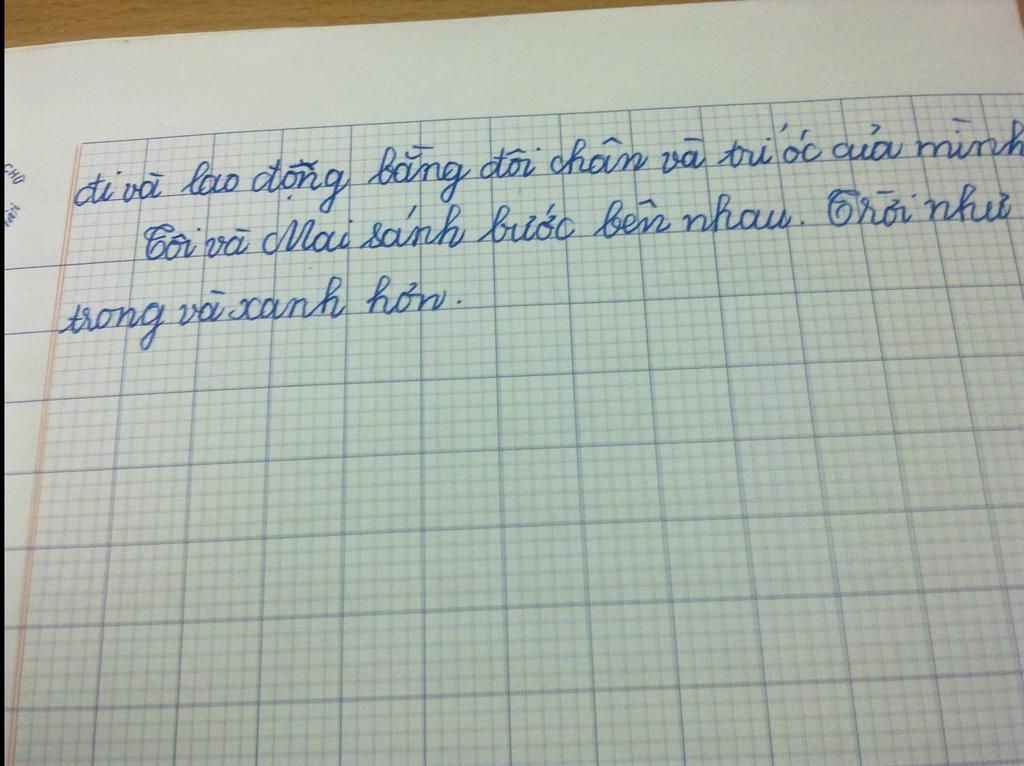 đi và lao động bằng đôi chân và tri óc của mình
Tôi và Mai sánh bước bên nhau. Trời như
trong và xanh hơn.